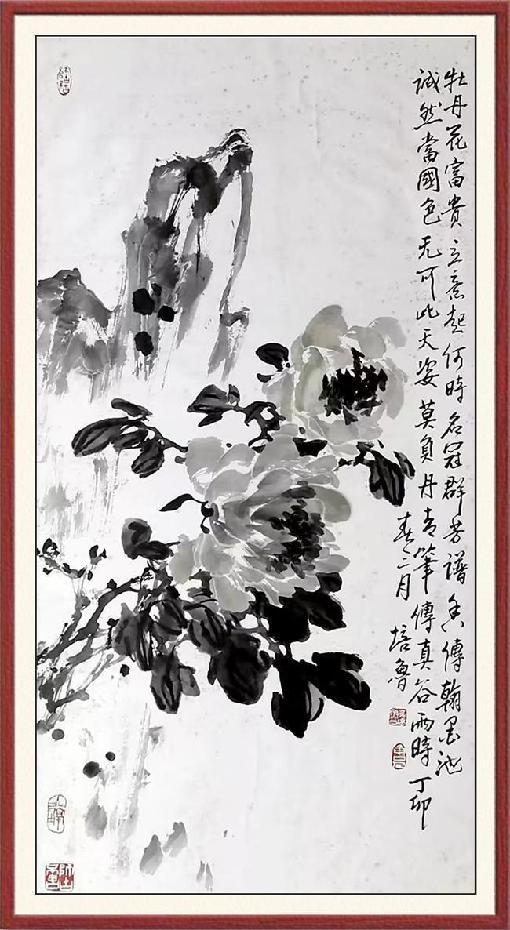 牡丹花富貴立意起何時名冠群芳譜香傳翰墨池
誠然當國色无可比天姿莫負丹青筆傳真谷雨時丁卯
春二月
培魯